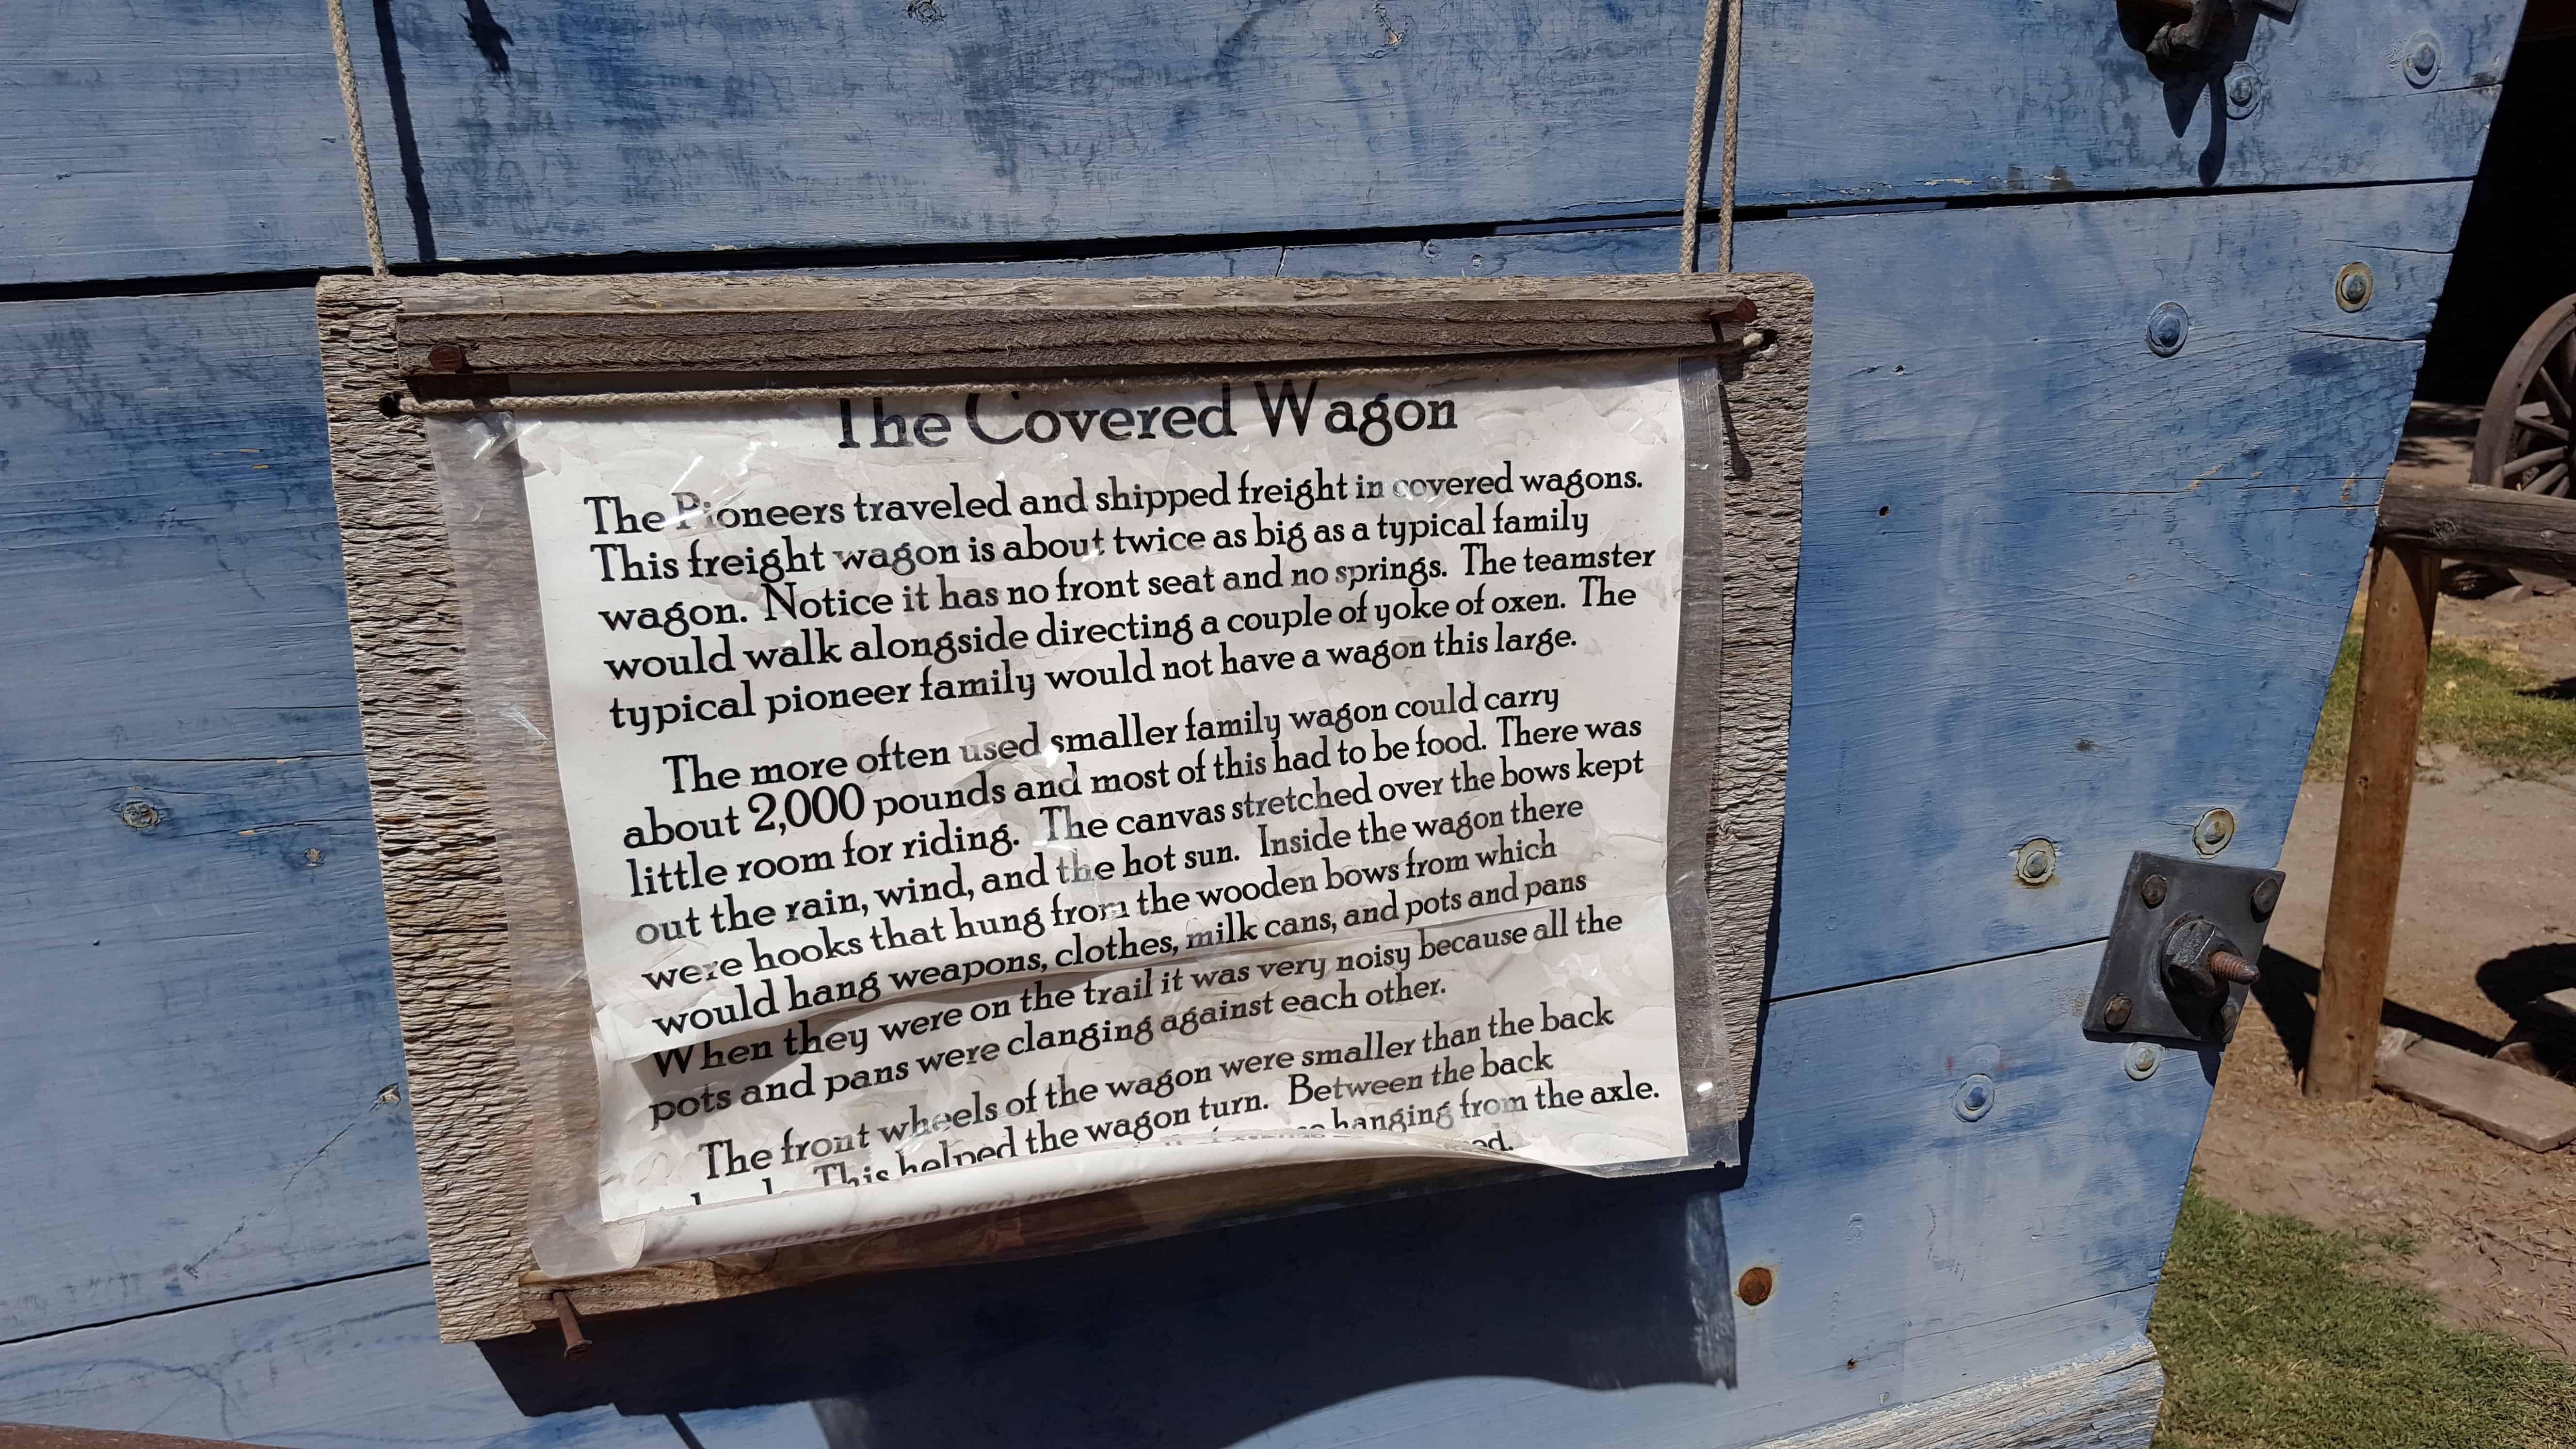 The Covered Wagon
The Pioneers traveled and shipped freight in covered wagons.
This freight wagon is about twice as big as a typical family
wagon. Notice it has no front seat and no springs. The teamster
would walk alongside directing a couple of yoke of oxen. The
typical pioneer family would not have a wagon this large.
The more often used smaller family wagon could carry
about 2,000 pounds and most of this had to be food. There was
little room for riding. The canvas stretched over the bows kept
out the rain, wind, and the hot sun. Inside the wagon there
were hooks that hung from the wooden bows from which
would hang weapons, clothes, milk cans, and pots and pans
When they were on the trail it was very noisy because all the
pots and pans were clanging against each other.
The front wheels of the wagon were smaller than the back
This helped the wagon turn. Between the back
hanging from the axle.